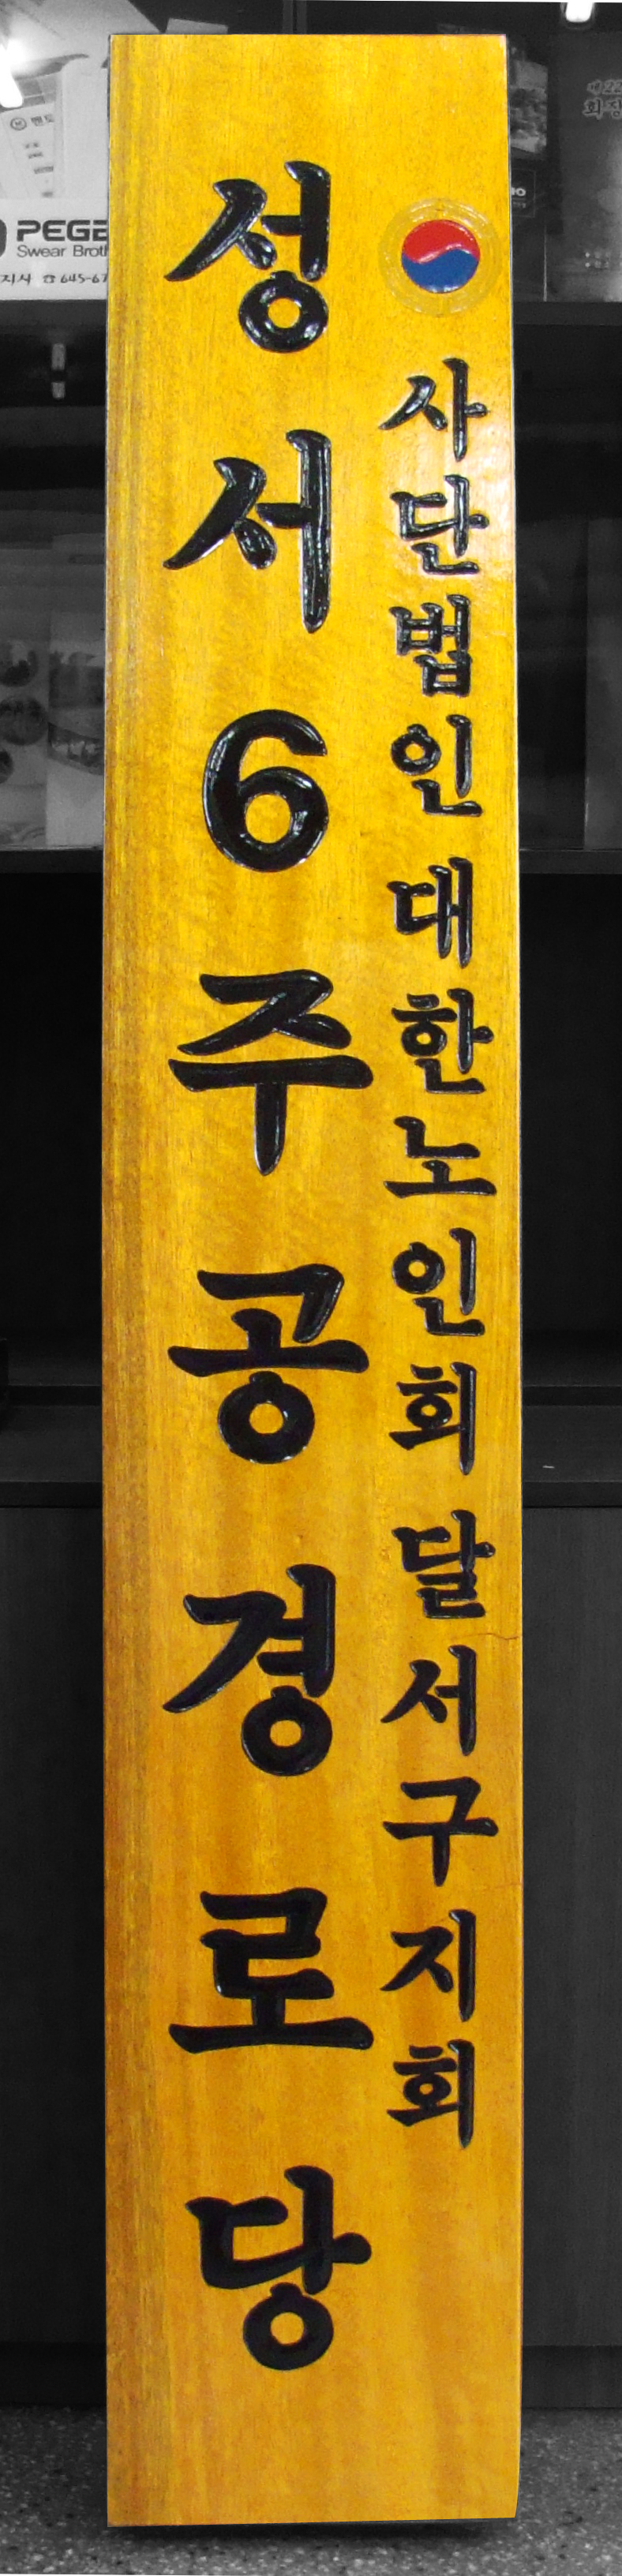 사단법인 대한노인회 달서구지회
성서6주공경로당
PEGE
Swear Broth
지사 ☎ 645-67